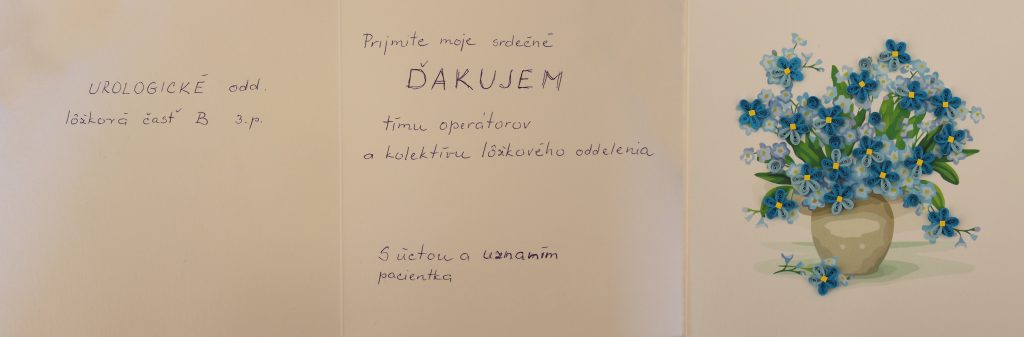 UROLOGICKÉ odd.
lôžková časť B 3.p.
Prijmite moje srdečné
ĎAKUJEM
tímu operátorov
a kolektívu lôžkového oddelenia
S úctou a uznaním
pacientka